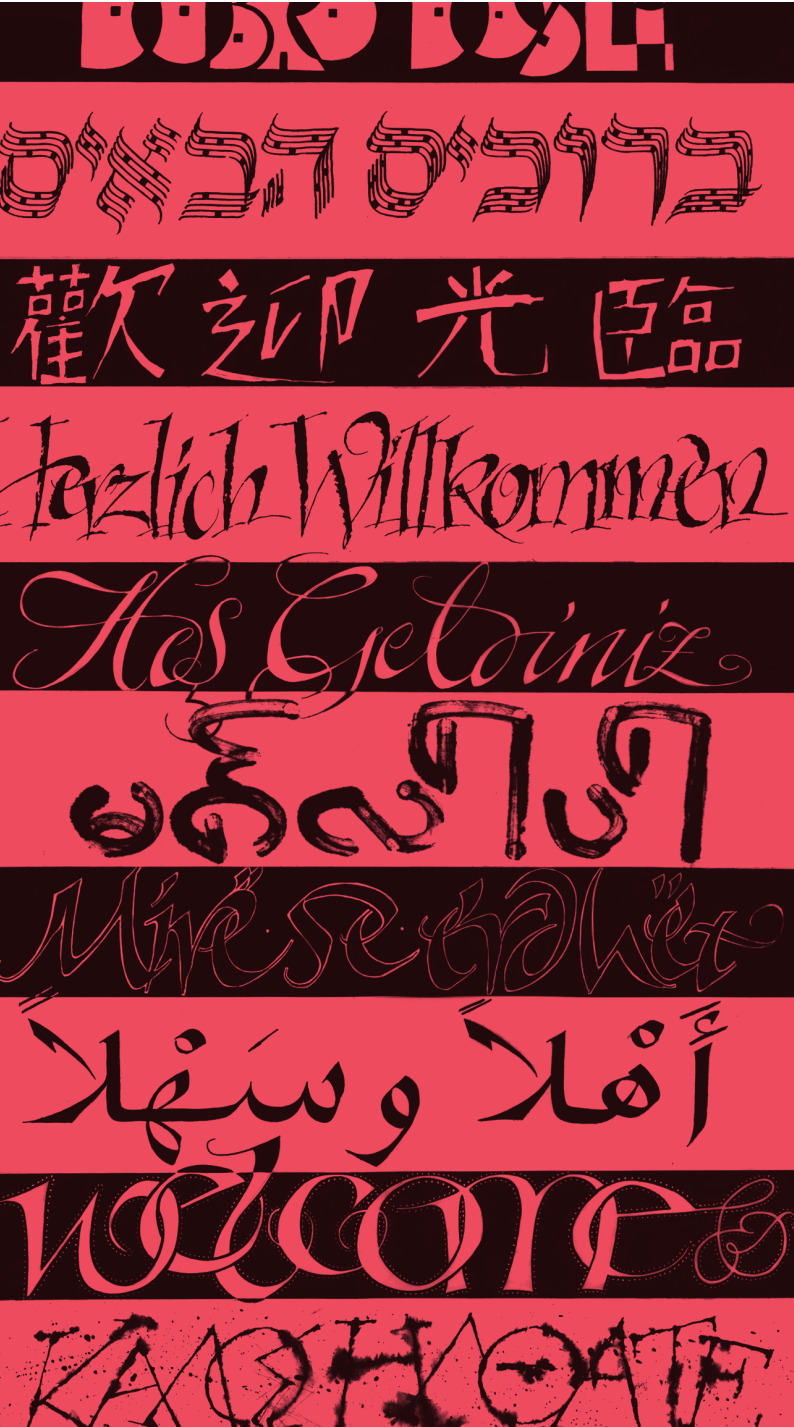 DOBRO DOŠLI
ברוכים הבאים
歡迎光臨
Herzlich Willkommen
Hoş Geldiniz
မင်္ဂလါပါ
Mirë se erdhët
أَهْلاً وسَهْلاً
welcome
ΚΑΛΩΣ ΗΛΘΑΤΕ